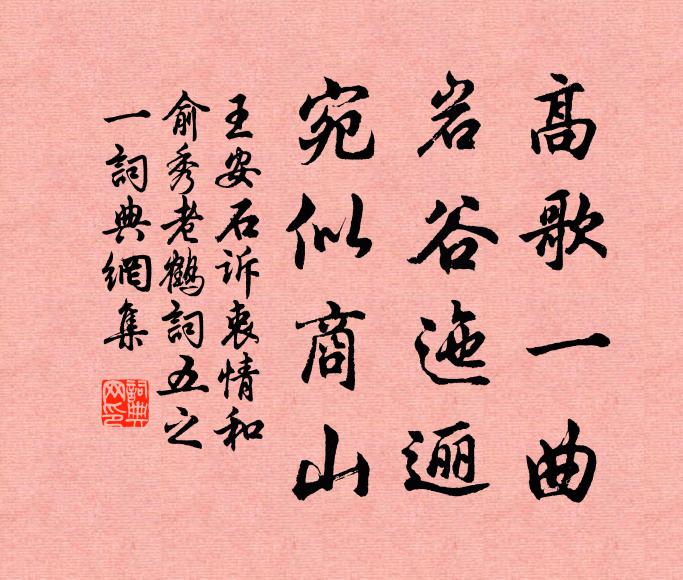 高歌一曲
岩谷迤逦
宛似商山
王安石诉衷情和
俞秀老鹤词五之
一词典網集
詞典
网印